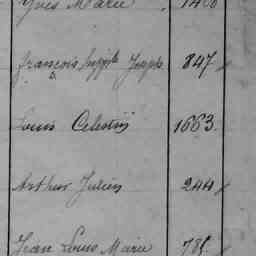 Yves Marie 1400
François Joseph 847
Louis Celestin 1663
Arthur Julien 244
Jean Louis Marie